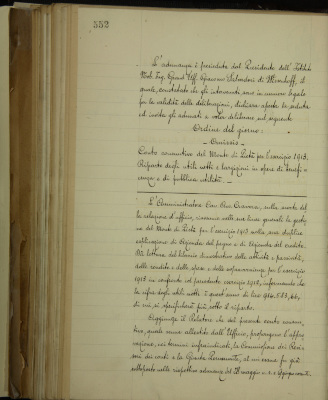 332
L'adunanza è presieduta dal Presidente dell'Istituto
Nob. Ing. Grand'Uff. Giacomo Salvadori di Wiesenhoff, il
quale, constatato che gli intervenuti sono in numero legale
per la validità delle deliberazioni, dichiara aperta la seduta
ed invita gli adunati a voler deliberare sul seguente
Ordine del giorno:
Omissis
Conto consuntivo del Monte di Pietà per l'esercizio 1913.
Riparto degli utili netti e largizioni in opere di benefi-
cenza e di pubblica utilità.
L'Amministratore Cav. Avv. Cravera, sulla scorta del
la relazione d'ufficio, riassume nelle sue linee generali la gestio
ne del Monte di Pietà per l'esercizio 1913 nella sua duplice
esplicazione di Azienda del pegno e di Azienda del credito.
Dà lettura del bilancio dimostrativo delle attività e passività,
delle rendite e delle spese e delle sopravvenienze per l'esercizio
1913 in confronto col precedente esercizio 1912, informando che
la cifra degli utili netti è quest'anno di lire
di cui, si specificherà più sotto il riparto.
Soggiunge il Relatore che del presente conto consun-
tivo, quale venne allestito dall'Ufficio, proposero l'appro
vazione, nei termini infraindicati, la Commissione dei Revi
sori dei conti e la Giunta Permanente, al cui esame fu già
sottoposto nelle rispettive adunanze del 28 maggio u. s. e